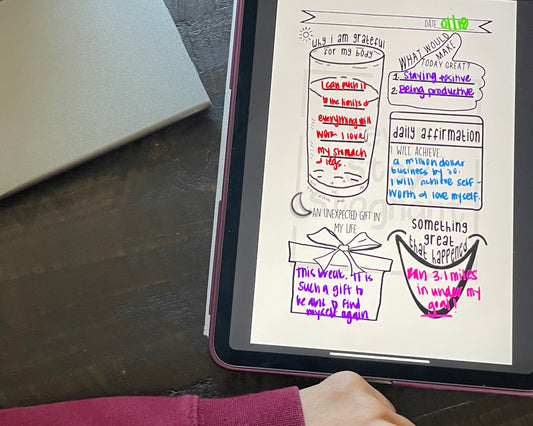 DATE: 01/18
Why i am grateful
for my body
I can push it
to the limits &
everything will
work. I love
my stomach
& legs.
WHAT WOULD
MAKE
TODAY GREAT?
1. Staying positive
2. Being productive
daily affirmation
I WILL ACHIEVE...
a million dollar
business by 30.
I will achieve self-
worth & love myself.
AN UNEXPECTED GIFT IN
MY LIFE
This break. It is
such a gift to
be able to find
myself again
something
great
that happened
Ran 3.1 miles
in under my
goal!